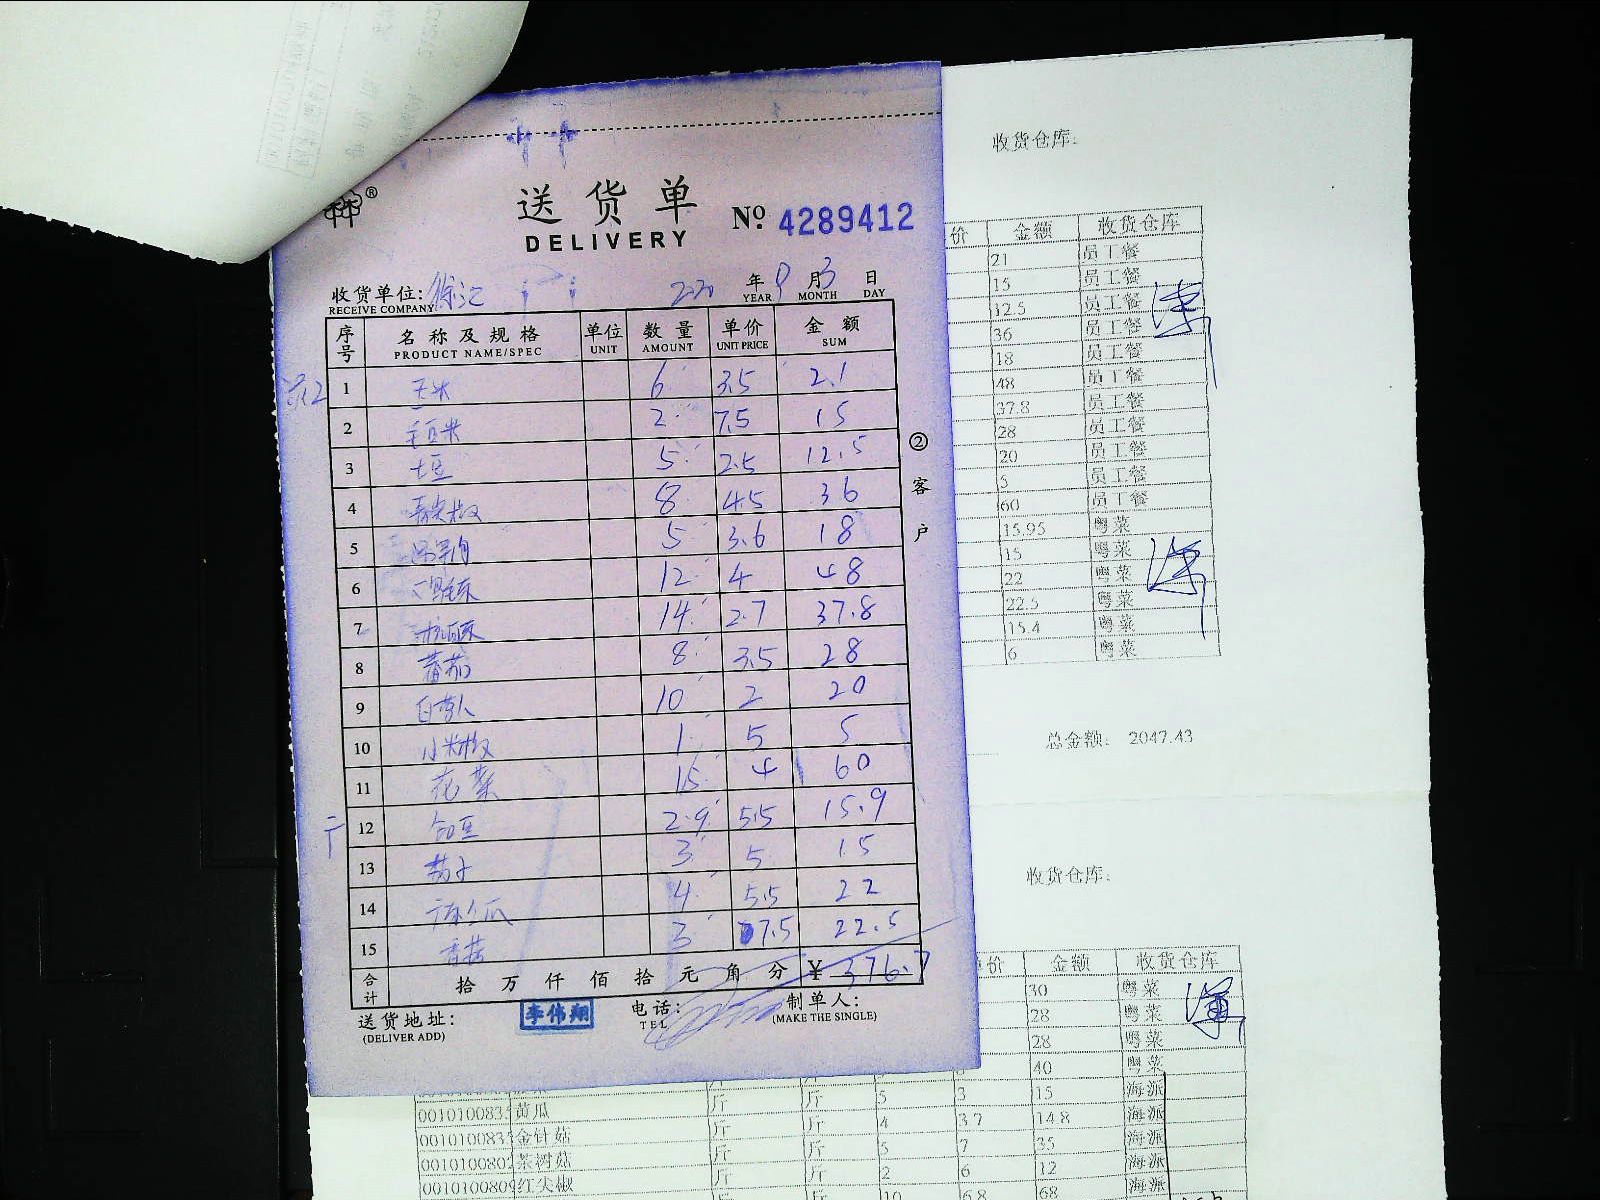 送货单
DELIVERY
№ 4289412
收货单位: 徐汇
RECEIVE COMPANY
2020 年 9 月 3 日
YEAR MONTH DAY
序号 名称及规格 单位 数量 单价 金额
PRODUCT NAME/SPEC UNIT AMOUNT UNIT PRICE SUM
1 玉米 6 3.5 2.1
2 毛豆米 2 7.5 15
3 土豆 5 2.5 12.5
4 青尖椒 8 4.5 36
5 5 3.6 18
6 12 4 48
7 14 2.7 37.8
8 番茄 8 3.5 28
9 白萝卜 10 2 20
10 小米椒 1 5 5
11 花菜 15 4 60
12 2.9 5.5 15.9
13 茄子 3 5 15
14 4 5.5 22
15 香菇 3 7.5 22.5
合计 拾 万 仟 佰 拾 元 角 分 ¥ 376.7
送货地址:
(DELIVER ADD)
李伟翔
电话:
TEL
制单人:
(MAKE THE SINGLE)
② 客户
收货仓库:
价 金额 收货仓库
21 员工餐
15 员工餐
12.5 员工餐
36 员工餐
18 员工餐
48 员工餐
37.8 员工餐
28 员工餐
20 员工餐
5 员工餐
60 员工餐
15.95 粤菜
15 粤菜
22 粤菜
22.5 粤菜
15.4 粤菜
6 粤菜
总金额: 2047.43
收货仓库:
价 金额 收货仓库
30 粤菜
28 粤菜
28 粤菜
40 粤菜
斤 斤 5 3 15 海派
黄瓜 斤 斤 4 3.7 14.8 海派
金针菇 斤 斤 5 7 35 海派
茶树菇 斤 斤 2 6 12 海派
红尖椒 斤 斤 10 6.8 68 海派